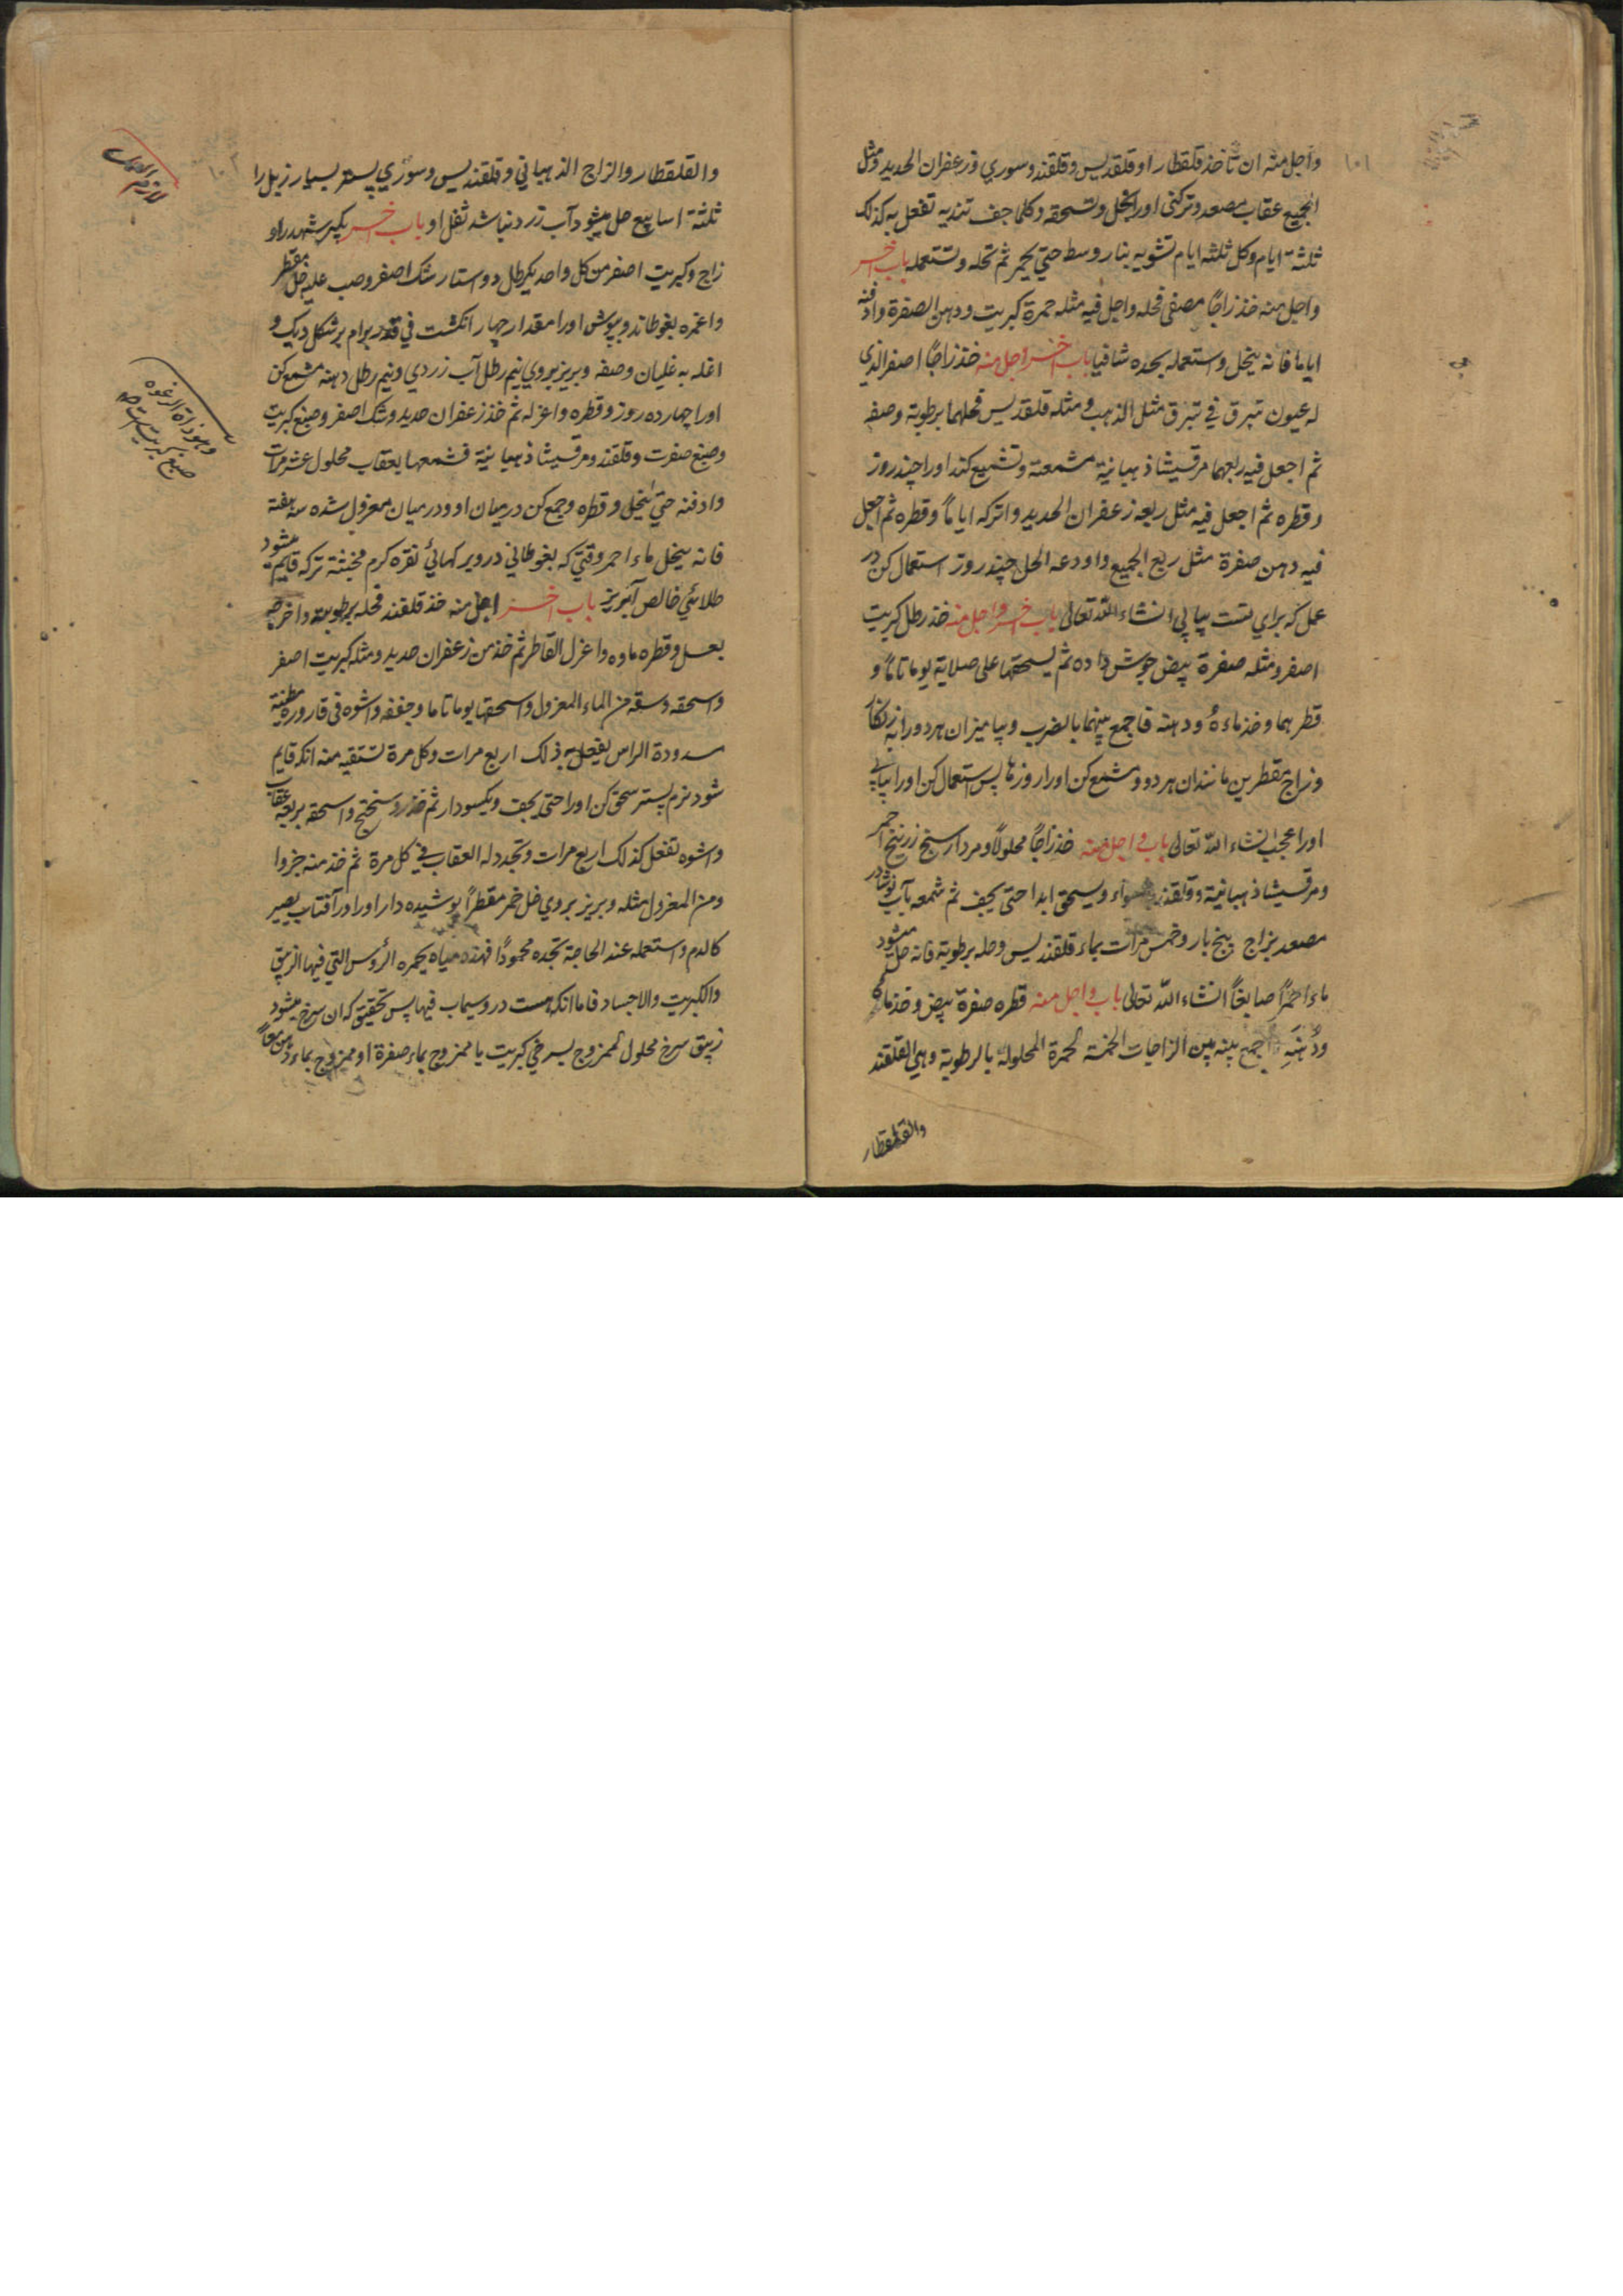 ۱۰۱
واجل منه ان تأخذ قلقطار او قلقدیس و قلقند و سوري و زعفران الحدید و مثل
الجمیع عقاب مصعد و ترکنی اورا بخل و تسحقه و کلما جف تندیه تفعل به کذلک
ثلثة ایام و کل ثلثه ایام تشویه بنار وسط حتي یحمر ثم تحله و تستعمله باب اخر
واجل منه خذ زاجًا مصفی فحله و اجل فیه مثله حمرة کبریت و دهن الصفرة و ادفنه
ایاما فانه ینحل و استعمله بجده شافیا باب اخر واجل منه خذ زاجًا اصفر الذي
له عیون تبرق في تبرق مثل الذهب و مثله قلقدیس فحلهما برطوبة وصفه
ثم اجعل فیه ربعهما مرقسیشا ذهبانیة مشمعة و تشمیع کند اورا چند روز
و قطره ثم اجعل فیه مثل ربعه زعفران الحدید و اترکه ایامًا و قطره ثم اجعل
فیه دهن صفرة مثل ربع الجمیع و اودعه الحل چند روز استعمال کن در
عمل که براي تست پیاپي انشاء الله تعالی باب اخر واجل منه خذ رطل کبریت
اصفر و مثله صفرة بیض جوش داده ثم یسحقها علی صلایة یوما تامًا و
قطرهما و خذ ماءهُ و دهنه فاجمع بینهما بالضرب و بیامیزان هر دو را به زنگار
و زاج مقطرین مانندان هر دو و مشمع کن اورا روزها پس استعمال کن اورا بیابي
اورا عجب انشاء الله تعالی باب واجل منه خذ زاجًا محلولًا و مردار سنج زرنیخ احمر
و مرقسیشا ذهبانیة و قلقند سواء و یسحق ابدا حتی یجف ثم شمعه بآب نوشادر
مصعد بزاج پنج بار و خمس مرات بماء قلقندیس و حله برطوبة فانه حل میشود
ماء احمرًا صابغًا انشاء الله تعالی باب واجل منه قطره صفرة بیض و خذ ماءه
و دُهنَه و اجمع بینه بین الزاجات الخمسة المحمرة المحلولة بالرطوبة و هي القلقند
والقلقطار
۱۰۲
والقلقطار والزاج الذهباني و قلقندیس و سوري پستر بسیار زبل را
ثلثة اسابیع حل میشود آب زرد نباشد ثفل او باب اخر بگیر شهد راو
زاج و کبریت اصفر من کل واحد یکرطل دو استار شک اصفر و صب علیه خل مقطر
و اغمره بغوطاند و بپوش اورا مقدار چهار انگشت في قدر برام بر شکل دیک و
اغله به غلیان وصفه و بریز بروي نیم رطل آب زردي و نیم رطل دهنه مشمع کن
اورا چهارده روز و قطره و اعزله ثم خذ زعفران حدید و شک اصفر و صبغ کبریت
و صبغ صفرت و قلقند و مرقسیشا ذهبانیة فشمعها بعقاب محلول عشر مرات
و ادفنه حتي ینحل و قطره و جمع کن درمیان او و درمیان معزول شده سه هفته
فانه ینحل ماء احمر وقتي که بغوطاني درویر کهائي نقره کرم مخبثنة ترکه قایم میشود
طلائي خالص آبریز باب اخر اجل منه خذ قلقند فحله برطوبة و اخرجه
بعسل و قطره ماوه و اعزل القاطر ثم خذ من زعفران حدید و مثله کبریت اصفر
و اسحقه و سقه من الماء المعزول و اسحقها یوما تاما و جففه و اشوه في قارورة مطینة
مسدودة الراس یفعل به ذلک اربع مرات و کل مرة تستقیه منه انکه قایم
شود نرم پستر سحق کن اورا حتی یجف و یکسودار ثم خذ روسختج و اسحقه بربعه عقاب
و اشوه تفعل کذلک اربع مرات و تجدد له العقاب في کل مرة ثم خذ منه جزوا
و من المعزول مثله و بریز بروي خل خمر مقطرًا پوشیده دار اورا در آفتاب یصیر
کالدم و استعمله عند الحاجة تجده محمودًا فهذه میاه یحمره الرؤس التي فیها الزیبق
والکبریت والاجساد فاما انکه هست درو سیماب فیها پس تحقیق که ان سرخ میشود
زیبق سرخ محلول الممزوج بسرخي کبریت یا ممزوج بماء صفرة او ممزوج بماء دهن معًا